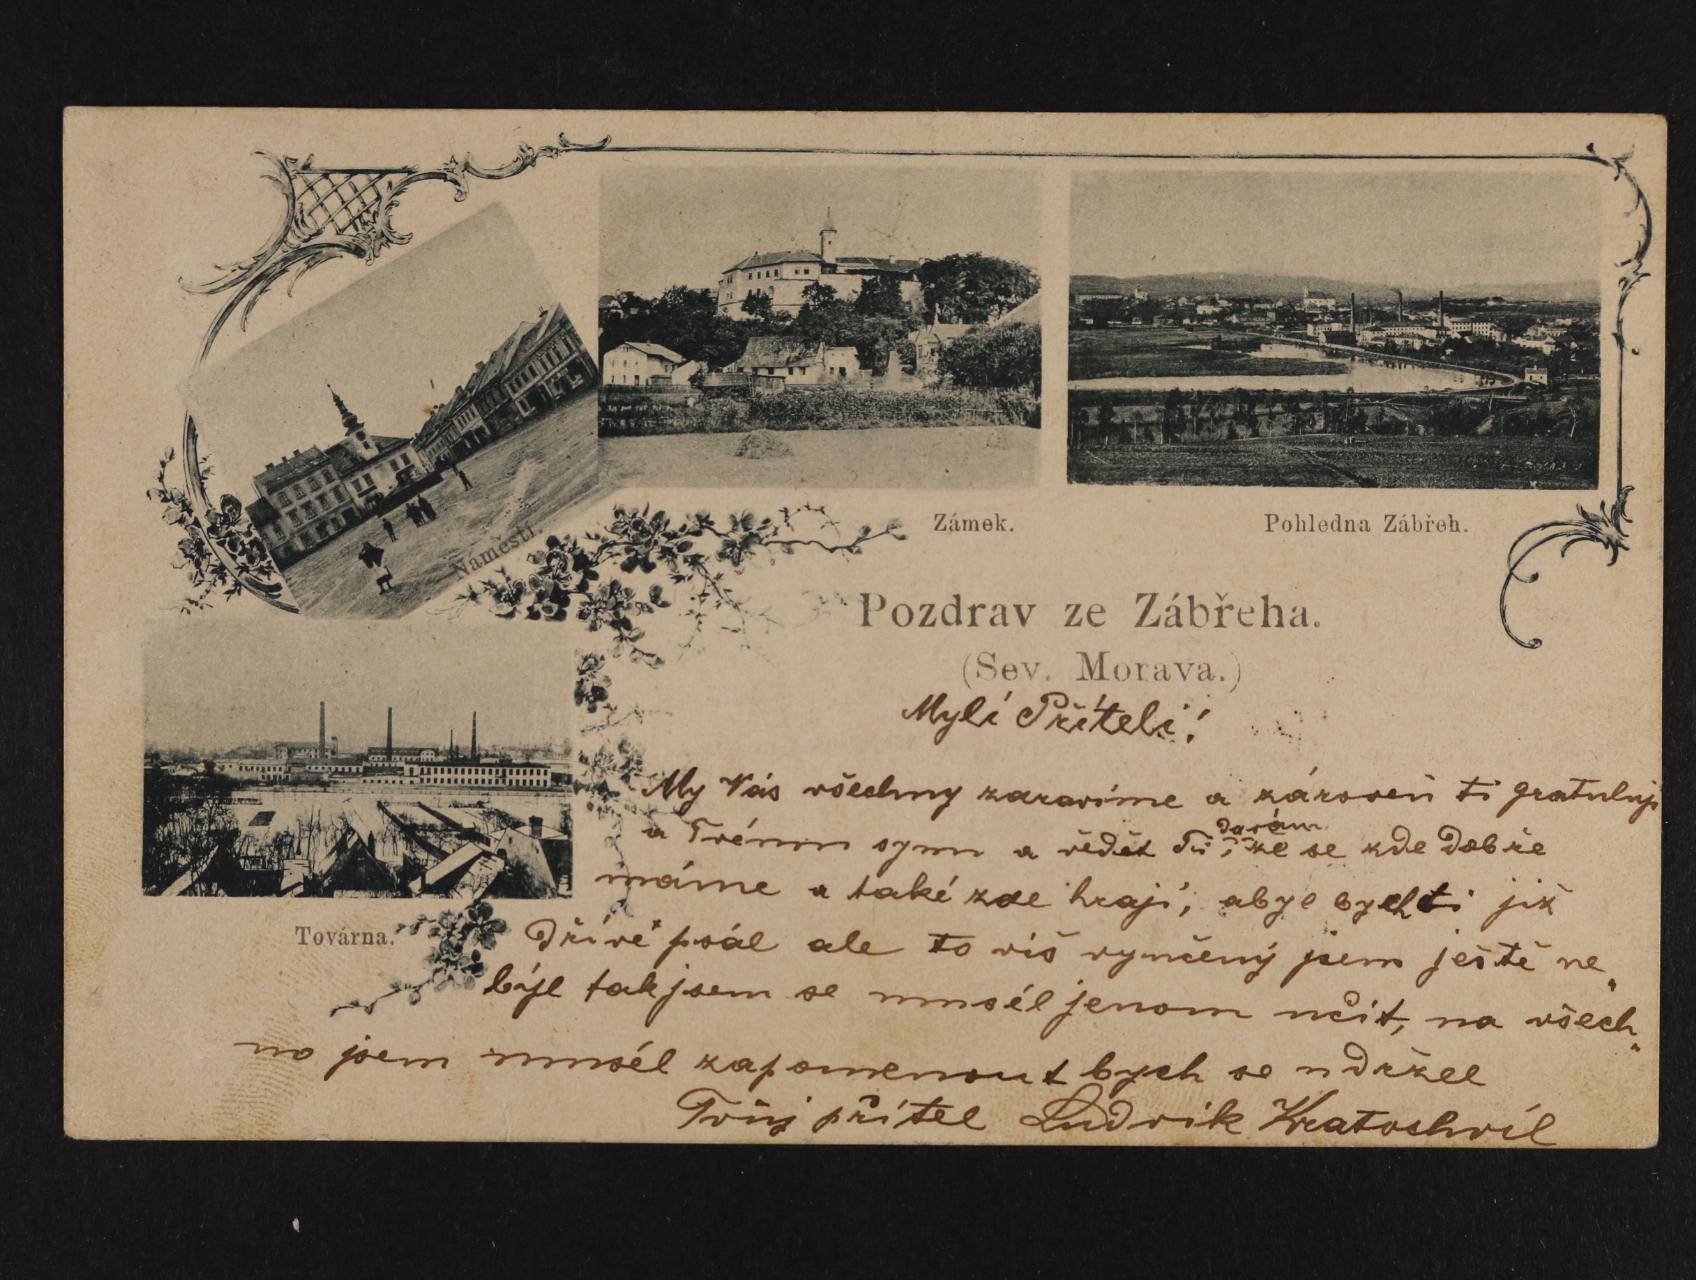 Náměstí.
Zámek.
Pohledna Zábřeh.
Pozdrav ze Zábřeha.
(Sev. Morava.)
Továrna.
Mylí Příteli!
My Vás všechny zdravíme a zároveň ti gratuluji
a vědět Ti, že se zde dobře
darám
máme a také zde hrají, bych ti již
Dříve psál ale to víš vyučený jsem ještě ne„
býl tak jsem se musél jenom učit, na všech„
no jsem musél zapomenout bych se udržel
Tvůj přítel Ludvik Kratochvíl